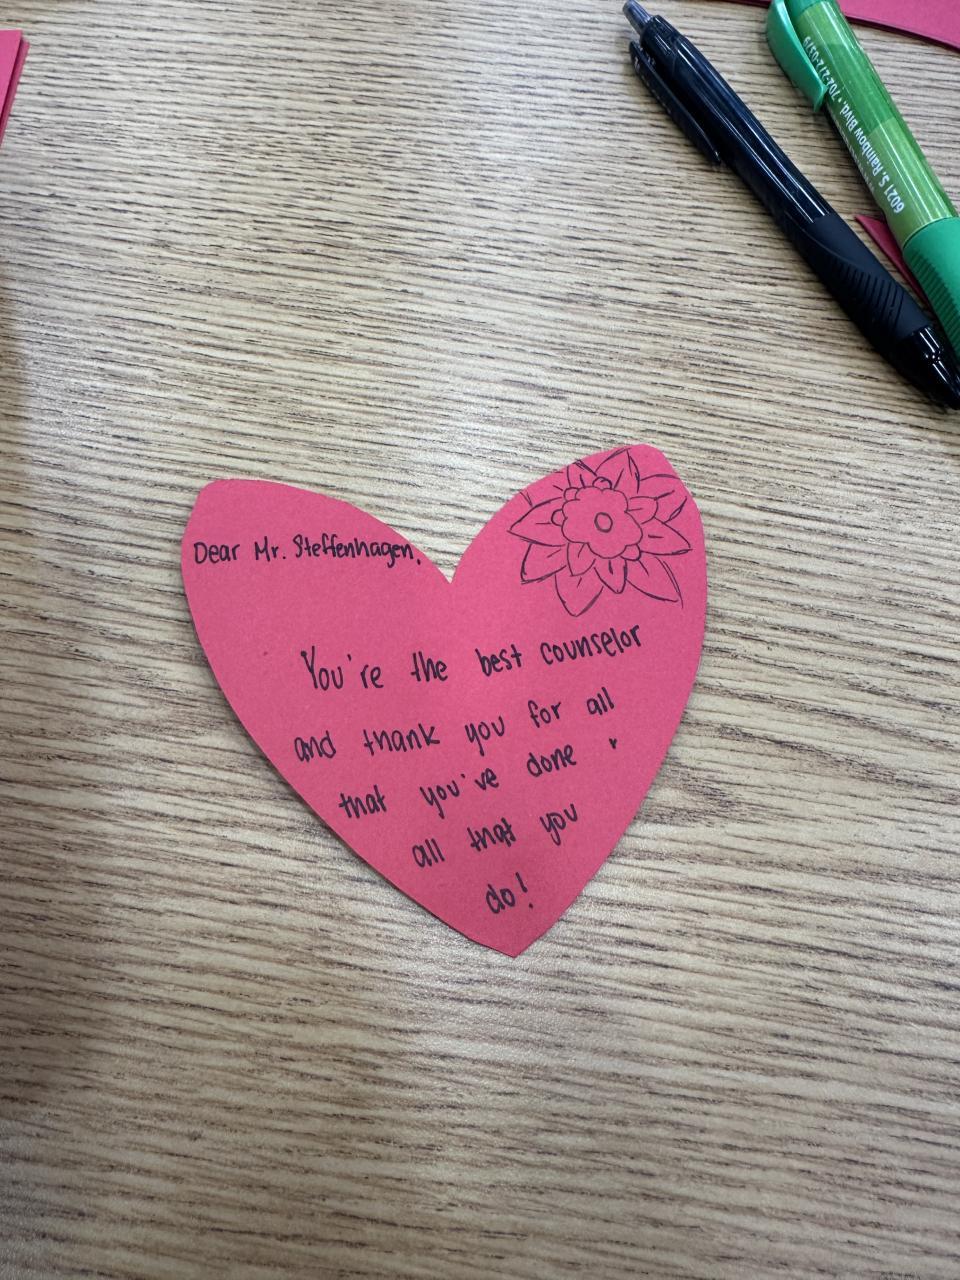 6021 S. Rainbow Blvd. • 702-272-0379
Dear Mr. Steffenhagen,
You're the best counselor
and thank you for all
that you've done
all that you
do!